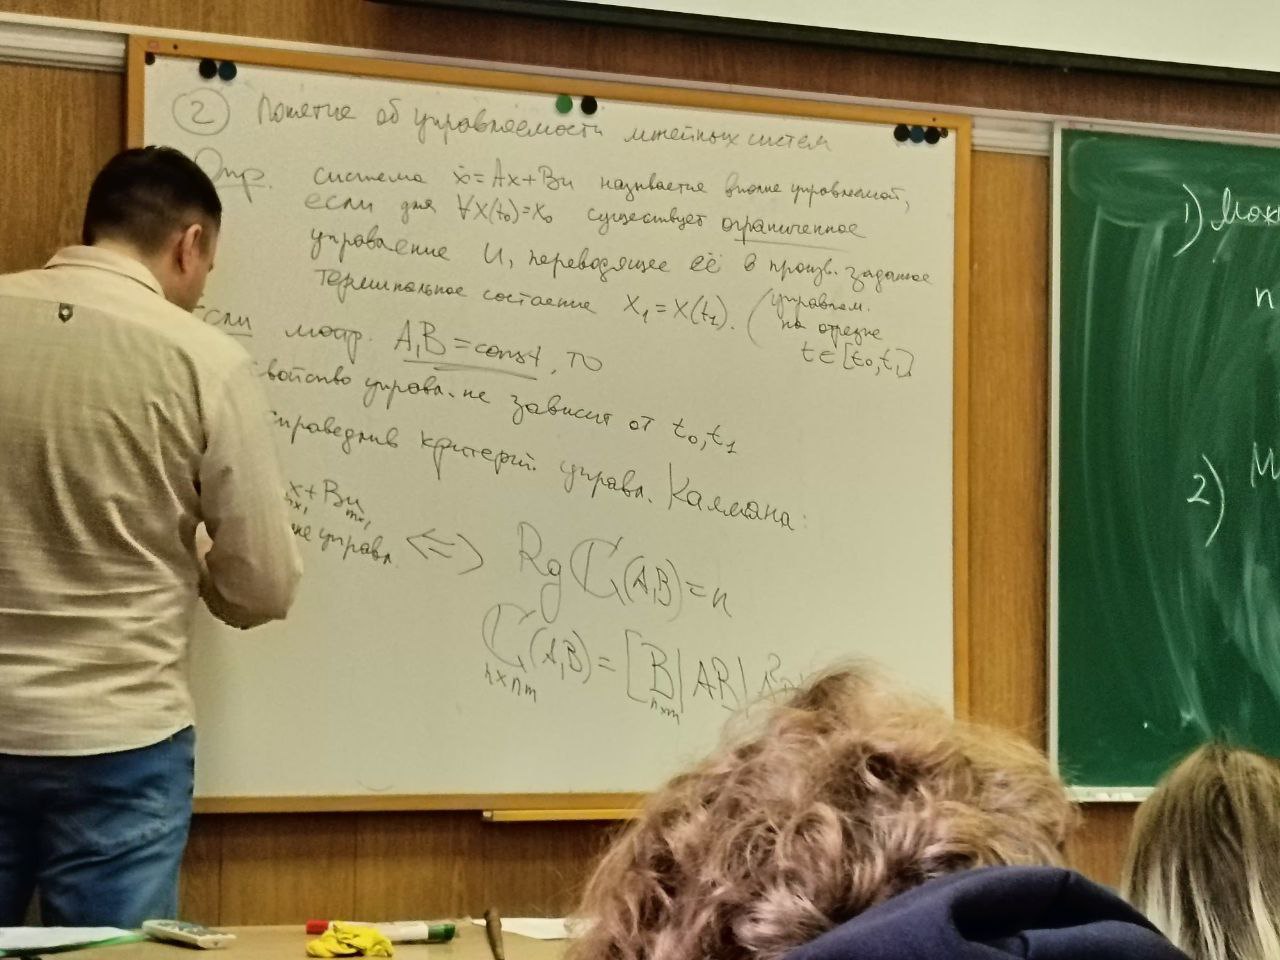 ② Понятие об управляемости линейных систем
Опр. система ẋ=Ax+Bu называется вполне управляемой,
если для ∀x(t₀)=x₀ существует ограниченное
управление u, переводящее её в произв. заданное
терминальное состояние x₁=x(t₁). (управляем.
на отрезке
t∈[t₀,t₁]
Если матр. A,B=const, то
свойство управл. не зависит от t₀,t₁
справедлив критерий управл. Калмана:
x+Bu
n×1 m×1
управл. <=> Rg ℂ(A,B)=n
ℂ(A,B)=[B|AB|
n×nm n×m
1)
n
2)